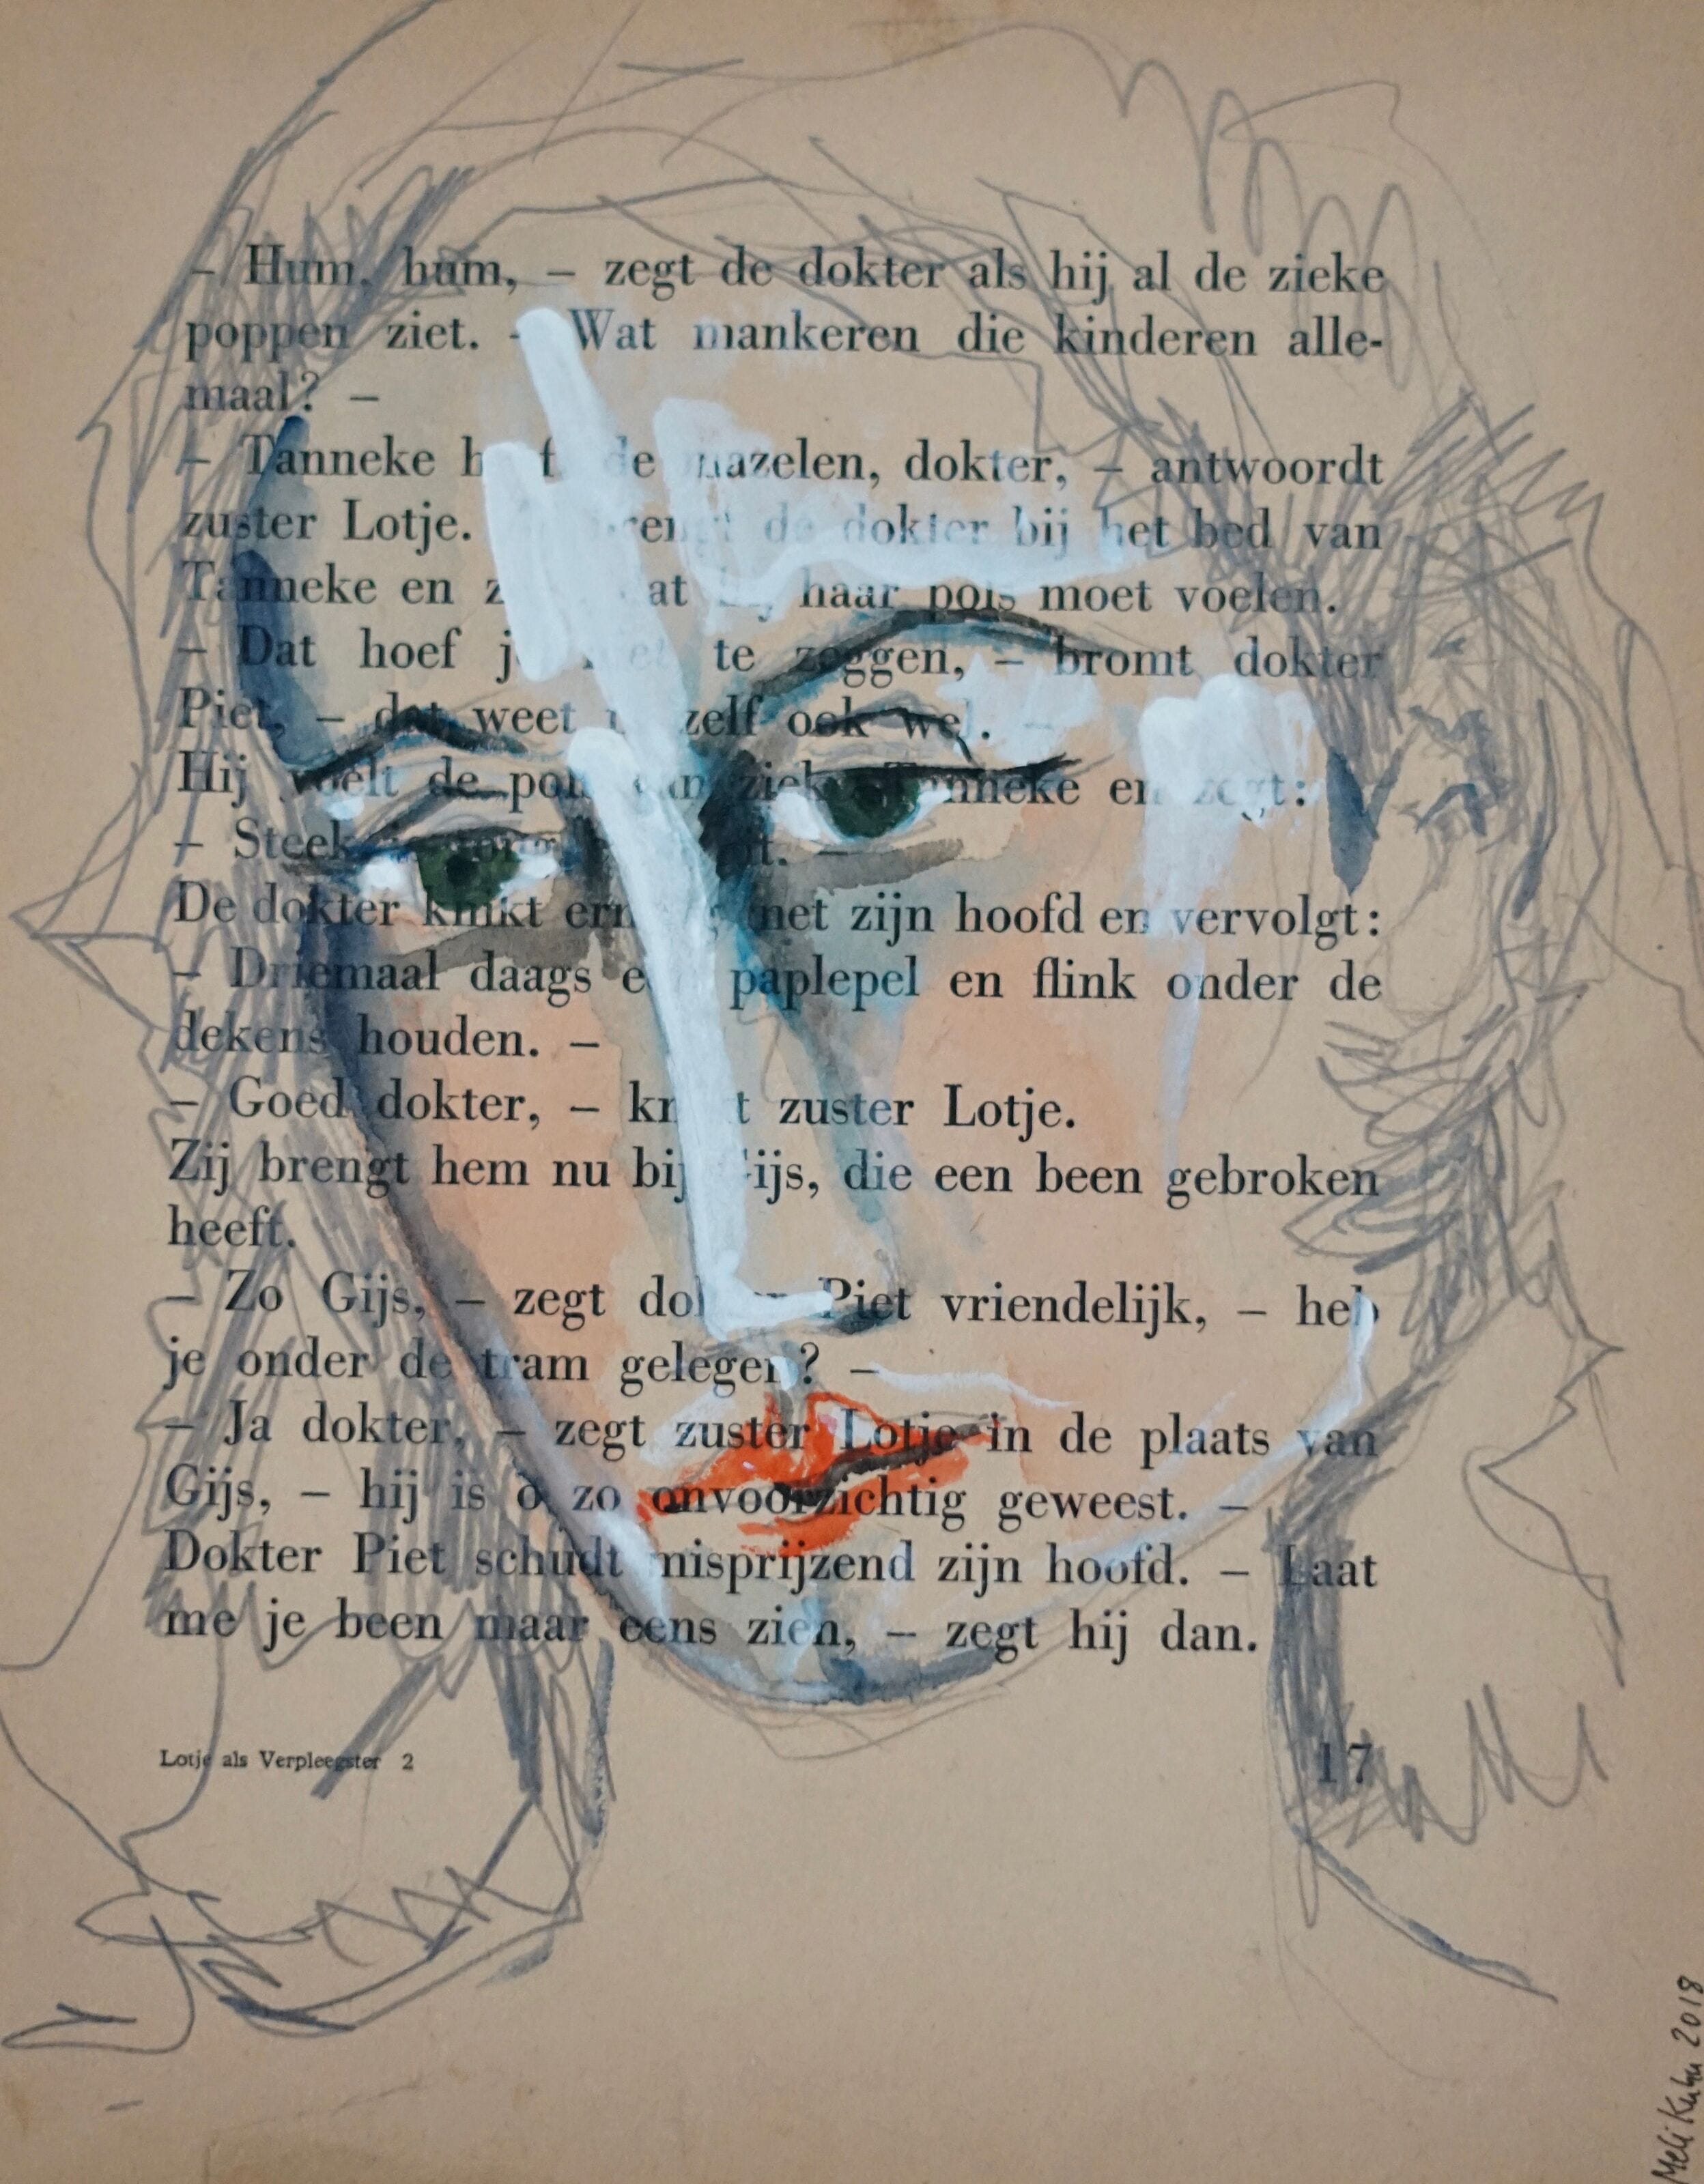 – Hum, hum, – zegt de dokter als hij al de zieke
poppen ziet. – Wat mankeren die kinderen alle-
maal? –
– Tanneke de mazelen, dokter, – antwoordt
zuster Lotje. de dokter bij het bed van
Tanneke en haar pols moet voelen.
– Dat hoef te zeggen, – bromt dokter
Piet, – dat weet zelf ook wel. –
Hij voelt de Tanneke en zegt:
– Steek
De dokter knikt met zijn hoofd en vervolgt:
– Driemaal daags paplepel en flink onder de
dekens houden. –
– Goed dokter, – zuster Lotje.
Zij brengt hem nu bij Gijs, die een been gebroken
heeft.
– Zo Gijs, – zegt dokter Piet vriendelijk, – heb
je onder de tram gelegen? –
– Ja dokter, – zegt zuster Lotje in de plaats van
Gijs, – hij is o zo onvoorzichtig geweest. –
Dokter Piet schudt misprijzend zijn hoofd. – Laat
me je been maar eens zien, – zegt hij dan.
Lotje als Verpleegster 2
17
Meli Kuhn 2018